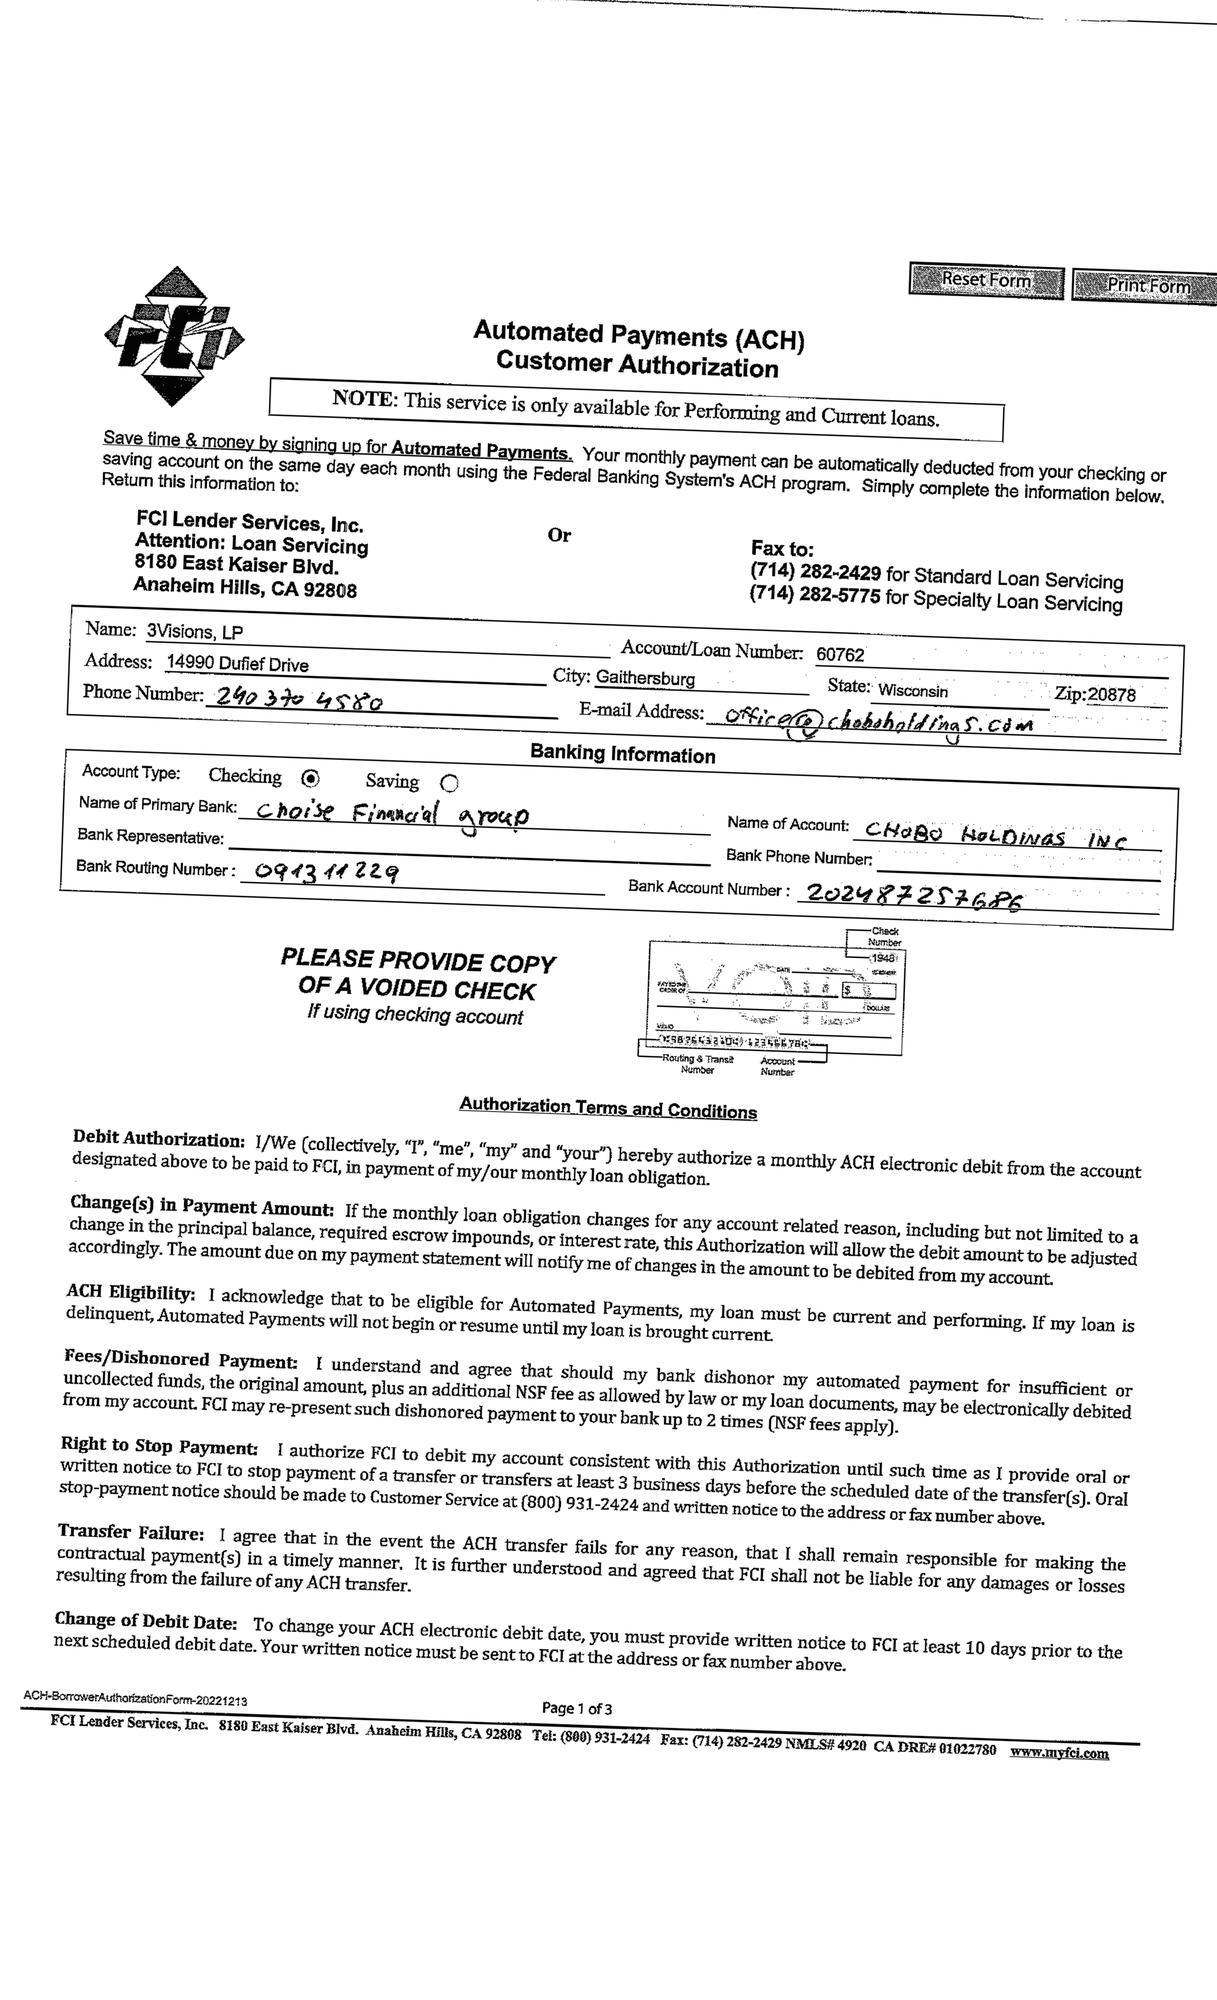 Reset Form
Print Form
FCI
Automated Payments (ACH)
Customer Authorization
NOTE: This service is only available for Performing and Current loans.
Save time & money by signing up for Automated Payments. Your monthly payment can be automatically deducted from your checking or
saving account on the same day each month using the Federal Banking System's ACH program. Simply complete the information below.
Return this information to:
FCI Lender Services, Inc.
Attention: Loan Servicing
8180 East Kaiser Blvd.
Anaheim Hills, CA 92808
Or
Fax to:
(714) 282-2429 for Standard Loan Servicing
(714) 282-5775 for Specialty Loan Servicing
Name: 3Visions, LP Account/Loan Number: 60762
Address: 14990 Dufief Drive City: Gaithersburg State: Wisconsin Zip:20878
Phone Number: 240 370 4580 E-mail Address: office@choboholdings.com
Banking Information
Account Type: Checking Saving
Name of Primary Bank: Choise Financial group Name of Account: CHOBO HOLDINGS INC
Bank Representative: Bank Phone Number:
Bank Routing Number : 091311229 Bank Account Number : 202487257686
PLEASE PROVIDE COPY
OF A VOIDED CHECK
If using checking account
Check
Number
1948
DATE
PAY TO THE
ORDER OF
$
DOLLARS
MEMO
Routing & Transit
Number
Account
Number
Authorization Terms and Conditions
Debit Authorization: I/We (collectively, “I”, “me”, “my” and “your”) hereby authorize a monthly ACH electronic debit from the account
designated above to be paid to FCI, in payment of my/our monthly loan obligation.
Change(s) in Payment Amount: If the monthly loan obligation changes for any account related reason, including but not limited to a
change in the principal balance, required escrow impounds, or interest rate, this Authorization will allow the debit amount to be adjusted
accordingly. The amount due on my payment statement will notify me of changes in the amount to be debited from my account.
ACH Eligibility: I acknowledge that to be eligible for Automated Payments, my loan must be current and performing. If my loan is
delinquent, Automated Payments will not begin or resume until my loan is brought current.
Fees/Dishonored Payment: I understand and agree that should my bank dishonor my automated payment for insufficient or
uncollected funds, the original amount, plus an additional NSF fee as allowed by law or my loan documents, may be electronically debited
from my account. FCI may re-present such dishonored payment to your bank up to 2 times (NSF fees apply).
Right to Stop Payment: I authorize FCI to debit my account consistent with this Authorization until such time as I provide oral or
written notice to FCI to stop payment of a transfer or transfers at least 3 business days before the scheduled date of the transfer(s). Oral
stop-payment notice should be made to Customer Service at (800) 931-2424 and written notice to the address or fax number above.
Transfer Failure: I agree that in the event the ACH transfer fails for any reason, that I shall remain responsible for making the
contractual payment(s) in a timely manner. It is further understood and agreed that FCI shall not be liable for any damages or losses
resulting from the failure of any ACH transfer.
Change of Debit Date: To change your ACH electronic debit date, you must provide written notice to FCI at least 10 days prior to the
next scheduled debit date. Your written notice must be sent to FCI at the address or fax number above.
ACH-BorrowerAuthorizationForm-20221213
Page 1 of 3
FCI Lender Services, Inc. 8180 East Kaiser Blvd. Anaheim Hills, CA 92808 Tel: (800) 931-2424 Fax: (714) 282-2429 NMLS# 4920 CA DRE# 01022780 www.myfci.com